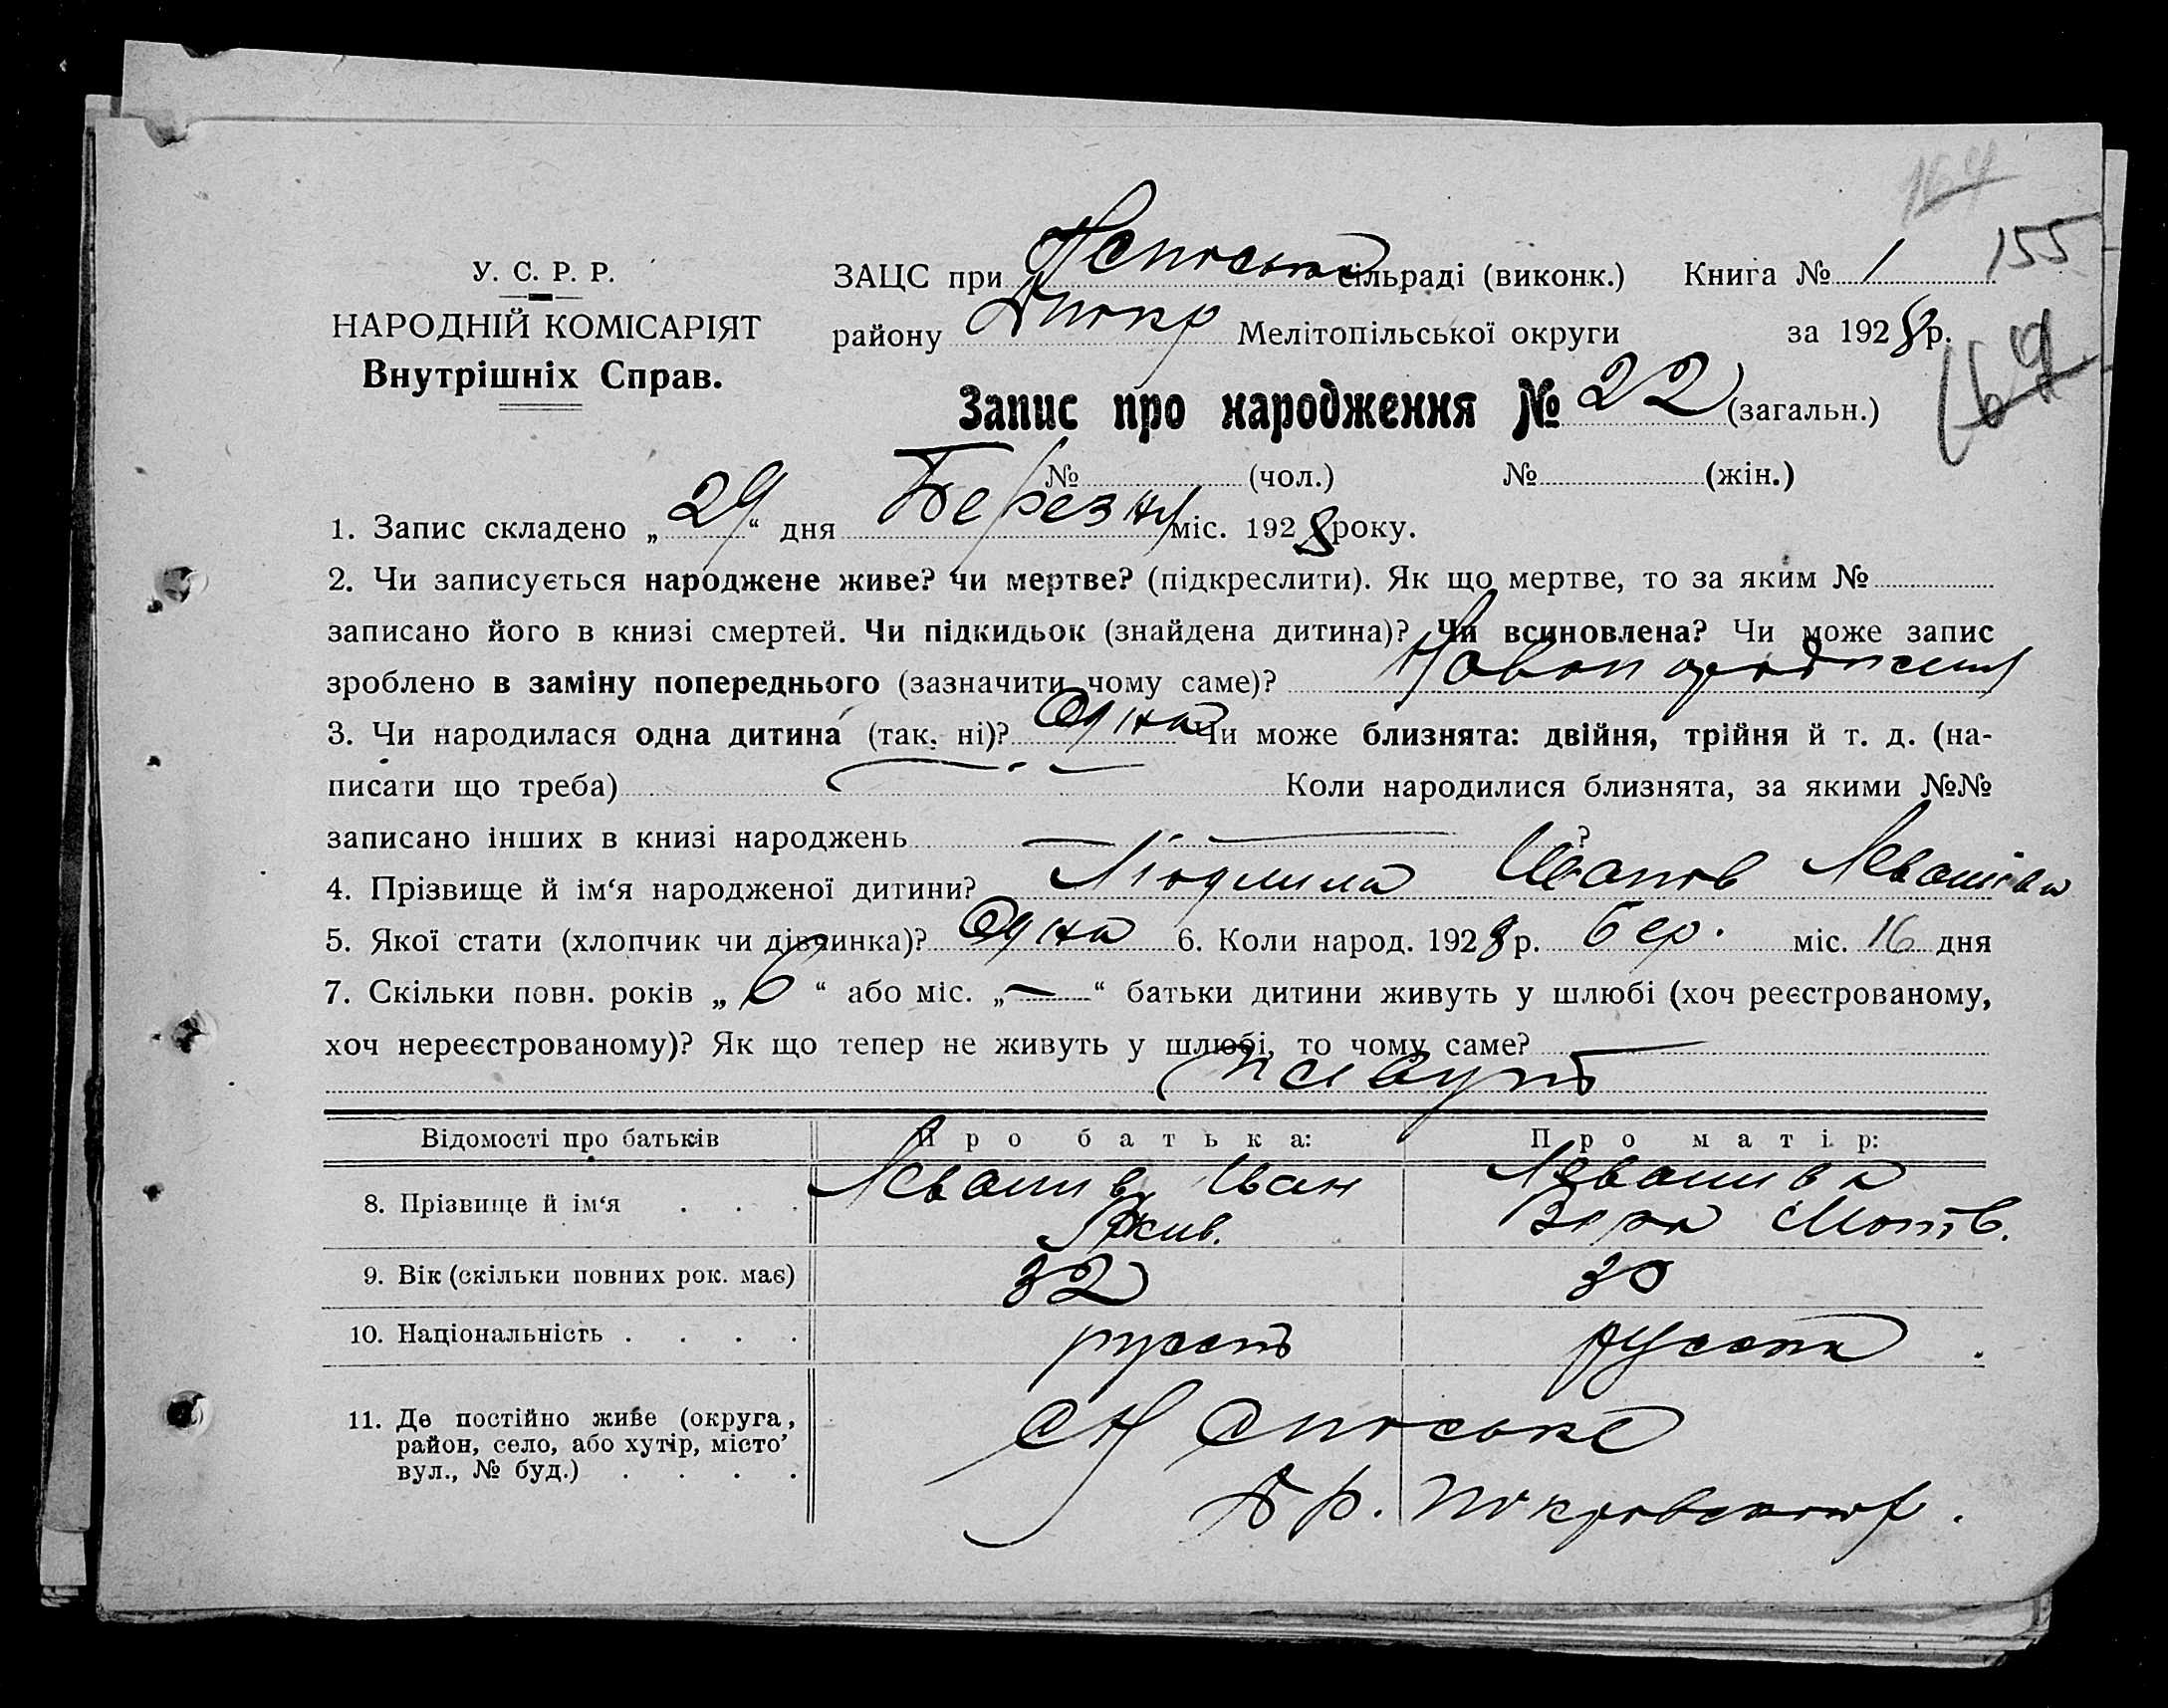 164
155
У. С. Р. Р.
НАРОДНІЙ КОМІСАРІЯТ
Внутрішніх Справ.
ЗАЦС при сільраді (виконк.) Книга № 1
району Мелітопільської округи за 1928 р.
Запис про народження № 22 (загальн.)
№ (чол.) № (жін.)
1. Запис складено „ 29 “ дня Березня міс. 1928 року.
2. Чи записується народжене живе? чи мертве? (підкреслити). Як що мертве, то за яким №
записано його в книзі смертей. Чи підкидьок (знайдена дитина)? Чи всиновлена? Чи може запис
зроблено в заміну попереднього (зазначити чому саме)?
3. Чи народилася одна дитина (так, ні)? Одна Чи може близнята: двійня, трійня й т. д. (на-
писати що треба) Коли народилися близнята, за якими №№
записано інших в книзі народжень — — ?
4. Прізвище й ім‘я народженої дитини? Людмила Иванов
5. Якої стати (хлопчик чи дівчинка)? Одна 6. Коли народ. 1928 р. бер. міс. 16 дня
7. Скільки повн. років „ 6 “ або міс. „ — “ батьки дитини живуть у шлюбі (хоч реєстрованому,
хоч нереєстрованому)? Як що тепер не живуть у шлюбі, то чому саме? —
живуть
Відомості про батьків Про батька: Про матір:
8. Прізвище й ім‘я . . . Иван
9. Вік (скільки повних рок. має) 32 30
10. Національність . . . .
11. Де постійно живе (округа,
район, село, або хутір, місто’
вул., № буд.) . . . .
Спаське
р. Покровського